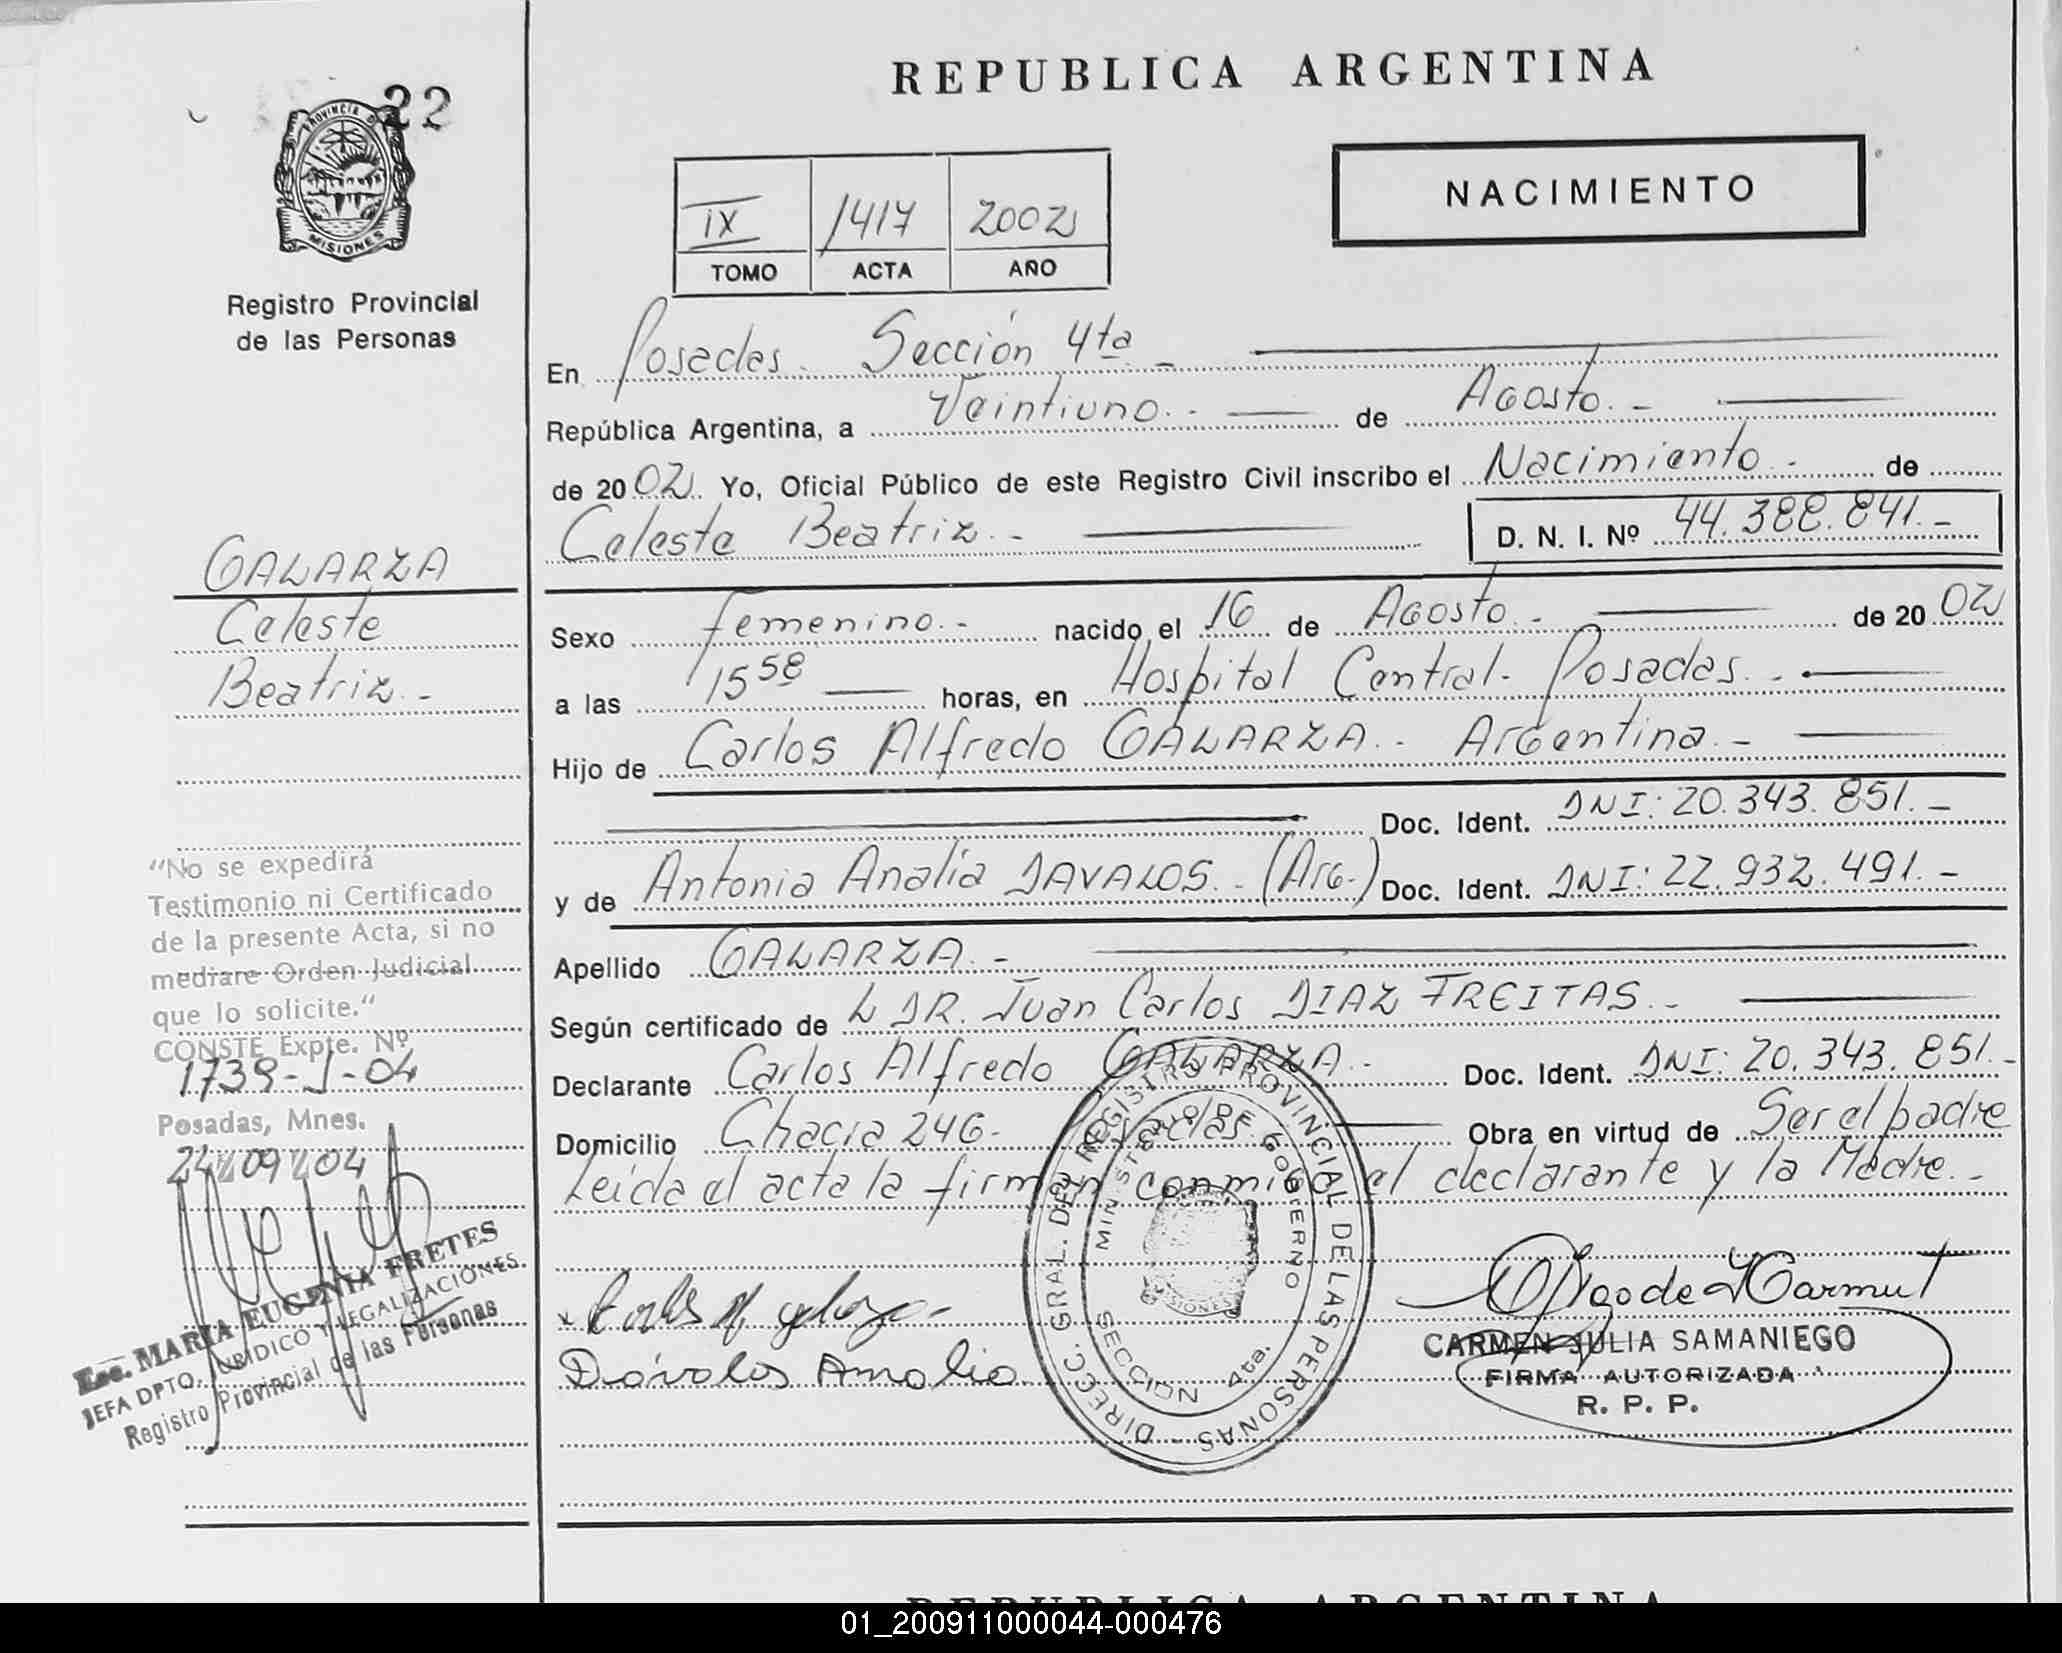 22
PROVINCIA D
MISIONES
Registro Provincial
de las Personas
GALARZA
Celeste
Beatriz.-
"No se expedirá
Testimonio ni Certificado
de la presente Acta, si no
mediare Orden Judicial
que lo solicite."
CONSTE Expte. Nº
1739-J-04
Posadas, Mnes.
24 09 04
Esc. MARIA EUGENIA FRETES
JEFA DPTO. JURIDICO Y LEGALIZACIONES
Registro Provincial de las Personas
REPUBLICA ARGENTINA
NACIMIENTO
IX 1417 2002
TOMO ACTA AÑO
En Posadas. Sección 4ta -
República Argentina, a Veintiuno.- de Agosto.-
de 2002. Yo, Oficial Público de este Registro Civil inscribo el Nacimiento.- de
Celeste Beatriz.- D. N. I. Nº 44.388.841.-
Sexo femenino.- nacido el 16 de Agosto.- de 2002
a las 15 58 horas, en Hospital Central. Posadas.-
Hijo de Carlos Alfredo GALARZA.- Argentina.-
Doc. Ident. DNI: 20.343.851.-
y de Antonia Analía DAVALOS.- (Arg.) Doc. Ident. DNI: 22.932.491.-
Apellido GALARZA.-
Según certificado de L DR. Juan Carlos DIAZ FREITAS.-
Declarante Carlos Alfredo GALARZA.- Doc. Ident. DNI: 20.343.851.-
Domicilio Chacra 246.- Posadas. Obra en virtud de Ser el padre
Leída el acta la firman conmigo el declarante y la Madre.-
DIRECC. GRAL. DEL REGISTRO PROVINCIAL DE LAS PERSONAS -
MINISTERIO DE GOBIERNO
SECCION 4ta.
MISIONES
Dávalos Analia
CARMEN JULIA SAMANIEGO
FIRMA AUTORIZADA
R. P. P.
REPUBLICA ARGENTINA
01_200911000044-000476